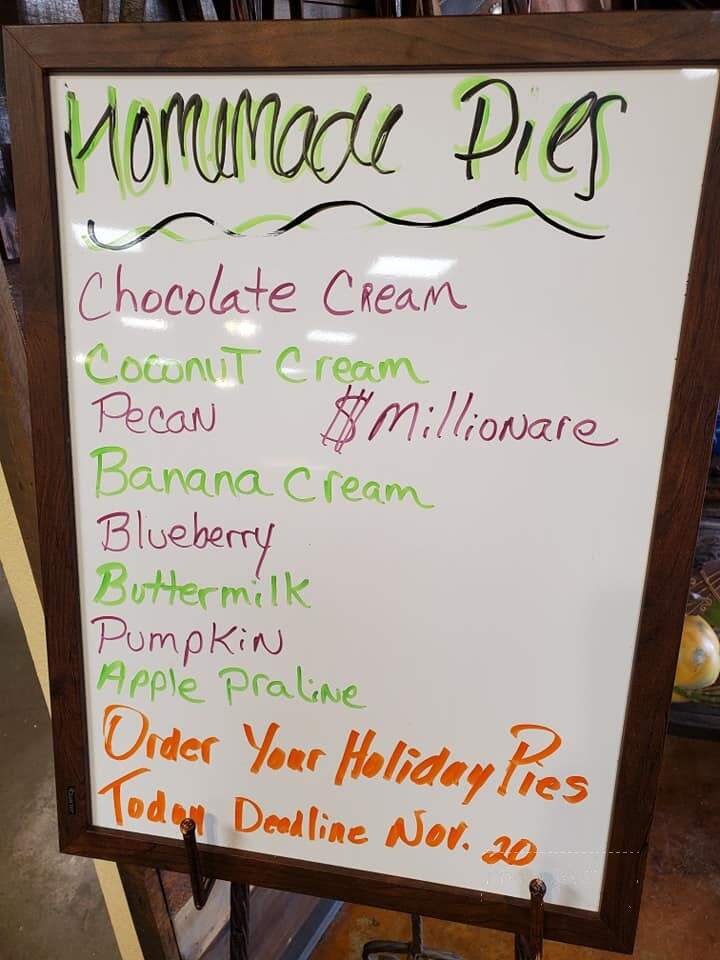 Homemade Pies
Chocolate Cream
Coconut Cream
Pecan $Millionare
Banana Cream
Blueberry
Buttermilk
Pumpkin
Apple Praline
Order Your Holiday Pies
Today Deadline Nov. 20